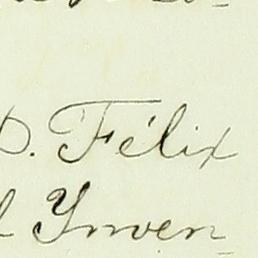 D. Félix
Ynven_